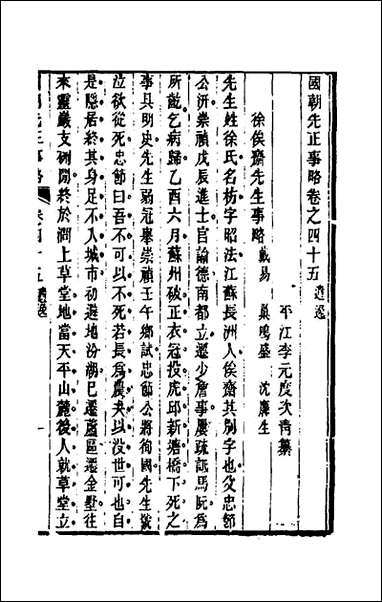 國朝先正事略卷之四十五 遺逸
平江李元度次青纂
徐俟齋先生事略 戴易 巢鳴盛 沈壽生
先生姓徐氏名枋字昭法江蘇長洲人俟齋其別字也父忠節
公汧崇禎戊辰進士官諭德南都立遷少詹事屢疏詆馬阮為
所齮乞病歸乙酉六月蘇州破正衣冠投虎邱新塘橋下死之
事具明史先生弱冠舉崇禎壬午鄉試忠節公將殉國先生號
泣欲從死忠節曰吾不可以不死若長為農夫以沒世可也自
是隱居終其身足不入城市初避地汾湖已遷蘆區遷金墅往
來靈巖支硎間終於澗上草堂地當天平山麓後人就草堂立